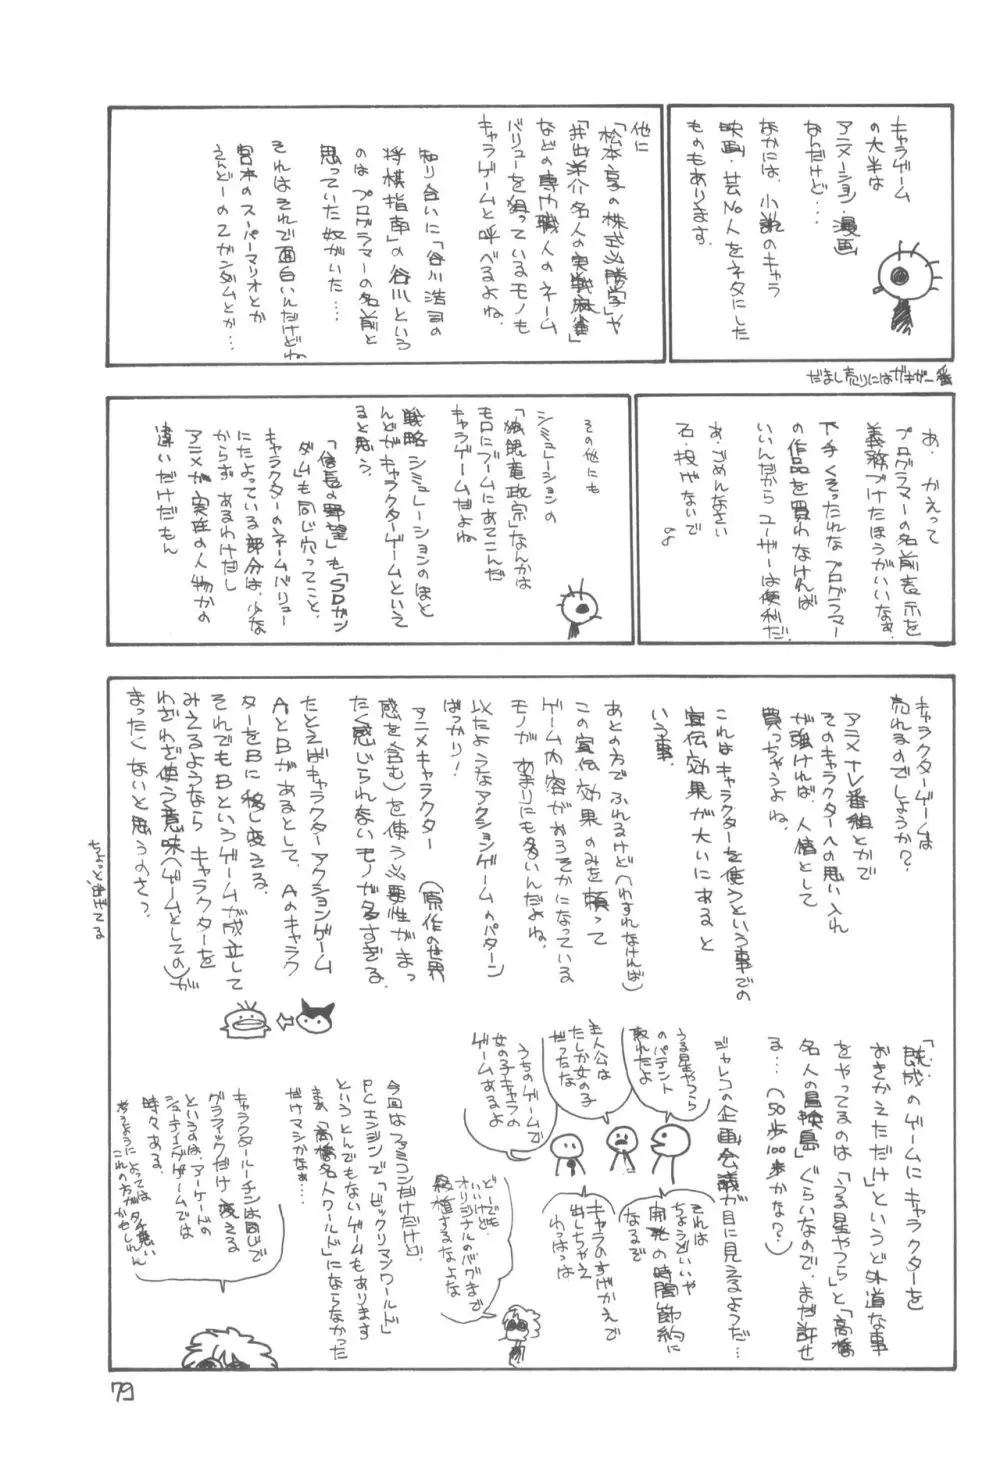 キャラゲーム
の大半は
アニメーション・漫画
なんだけど…
なかには、小説のキャラ
映画・芸No人をネタにした
ものもあります。
他に
「松本亨の株式必勝学」や
「井出洋介名人の実戦麻雀」
などの専門職人のネーム
バリューを狙っているモノも
キャラゲームと呼べるよね。
知り合いに「谷川浩司の
将棋指南」の谷川という
のはプログラマーの名前と
思っていた奴がいた…。
それはそれで面白いんだけどね
宮本のスーパーマリオとか
えんどーのZガンダムとか…
だまし売りにはガキが一番
あ、かえって
プログラマーの名前表示を
義務づけたほうがいいなぁ。
下手くそったれなプログラマー
の作品を買わなければ
いいんだからユーザーは便利だ。
あ、ごめんなさい
石、投げないで
その他にも
シミュレーションの
「独眼竜政宗」なんかは
モロにブームにあてこんだ
キャラゲームだよね
戦略シミュレーションのほと
んどがキャラクターゲームといえ
ると思う。
「信長の野望」も「SDガン
ダム」も同じ穴ってこと、
キャラクターのネームバリュー
にたよっている部分は、少な
からずあるわけだし
アニメか実在の人物かの
違いだけだもん
キャラクターゲームは
売れるのでしょうか?
アニメ・テレビ番組とかで
そのキャラクターへの思い入れ
が強ければ、人情として
買っちゃうよね。
これはキャラクターを使うという事での
宣伝効果が大いにあると
いう事、
あとの方でふれるけど(わすれなければ)
この宣伝効果のみを頼って
ゲーム内容がおろそかになっている
モノがあまりにも多いんだよね。
以たようなアクションゲームのパターン
ばっかり!
アニメキャラクター(原作の世界
感を含む)を使う必要性がまっ
たく感じられないモノが多すぎる。
たとえばキャラクターアクションゲーム
AとBがあるとして、Aのキャラク
ターをBに移し変える。
それでもBというゲームが成立して
みえるようなら キャラクターを
わざわざ使う意味(ゲームとしての)が
まったくないと思うのさっ。
「既成のゲームにキャラクターを
おきかえただけ」というど外道な事
をやってるのは「うる星やつら」と「高橋
名人の冒険島」ぐらいなので、まだ許せ
る…(50歩100歩かな?)
ジャレコの企画会議が目に見えるようだ…
うる星やつら
のパテント
取れたよ
主人公は
たしか女の子
だったな
うちのゲームで
女の子キャラの
ゲームあるよ
それは
ちょうどいいや
開発の時間節約に
なるぞ
キャラのすげかえで
出しちゃえ
わっはっは
どーでも
いいけど、
オリジナルのバグまで
移植するなよな
今回はファミコンだけだけど、
PCエンジンで「ビックリマンワールド」
というとんでもないゲームもあります
まぁ「高橋名人ワールド」にならなかった
だけマシかなぁ…。
キャラクタールーチンは同じで
グラフィックだけ変える
というのは、アーケードの
シューティングゲームでは
時々ある。
考えようによってはタチ悪い
これの方がかもしれん
79